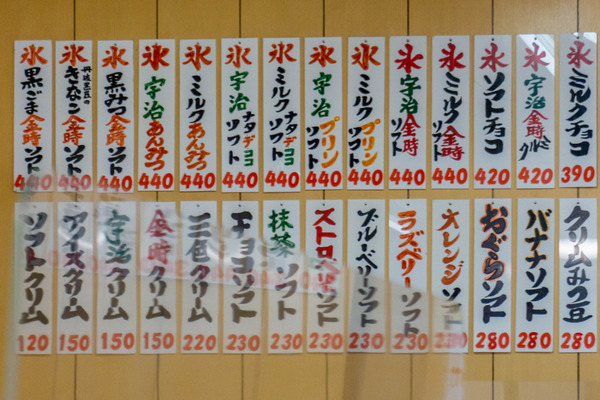 氷 ミルクチョコ 390
氷 宇治金時クルミ 420
氷 ソフトチョコ 420
氷 ミルク金時ソフト 440
氷 宇治金時ソフト 440
氷 ミルクプリンソフト 440
氷 宇治プリンソフト 440
氷 ミルクナタデココソフト 440
氷 宇治ナタデココソフト 440
氷 ミルクあんみつ 440
氷 宇治あんみつ 440
氷 黒みつ金時ソフト 440
氷 丹波黒豆のきなこ金時ソフト 440
氷 黒ごま金時ソフト 440
クリームみつ豆 280
バナナソフト 280
おぐらソフト 280
オレンジソフト
ラズベリーソフト 230
ブルーベリーソフト 230
ストロベリーソフト 230
抹茶ソフト 230
チョコソフト 230
三色クリーム 220
金時クリーム 150
宇治クリーム 150
アイスクリーム 150
ソフトクリーム 120